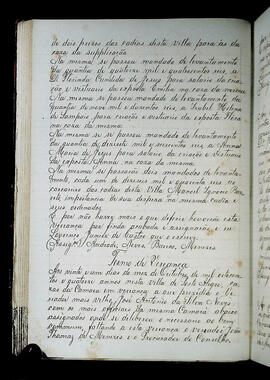 de dois prezos das cadias desta Villa para as da
caza da supplicação.
Na mesma se passou mandado de levantamento
da quantia de quatorze mil e quatrocentos reis, a
D. Florinda Candida de Jesus para salario da cria-
ção e vistuario da exposta Emilia na caza da mesma
Na mesma se passou mandado de levantamento da
quantia de nove mil e duzentos reis, a Izabel
de Sampaio para criação e vistuario da exposta
na caza da mesma.
Na mesma se passou mandado de levantamento
da quantia de dezoito mil e seiscentos reis a Anna
Maria de Jesus para salario da criação e vistuario
da exposta Anna, na caza da mesma
Na mesma se passarão dois mandados de levanta-
mento, cada um de dezaseis mil e quarenta reis
das cadias desta Villa Manoel Ignacio Para
importancia de sua despeza na mesma cadia e
seus ordenados
E por não haver mais o que deferir houverão esta
vereança por finda acabada e assignarão, e eu
Lourenço Justino de Castro que o escrevi.
Assign.os Andrade, Serra, Barros, Menezes
Termo de Vereança
Aos vinte e um dias do mez de Outubro de mil e oitocen-
tos e quatorze annos nesta Villa de
caza da Camara em vereança a que prezidio o Ve-
riador mais velho José Antonio da Silva Neves
com os mais officiaes da mesma Camara abaixo
assignados onde se deliberou e accordou ao bem
commum, faltando a esta vereança o vereador José
Thomaz de Menezes e o Procurador do Conselho.